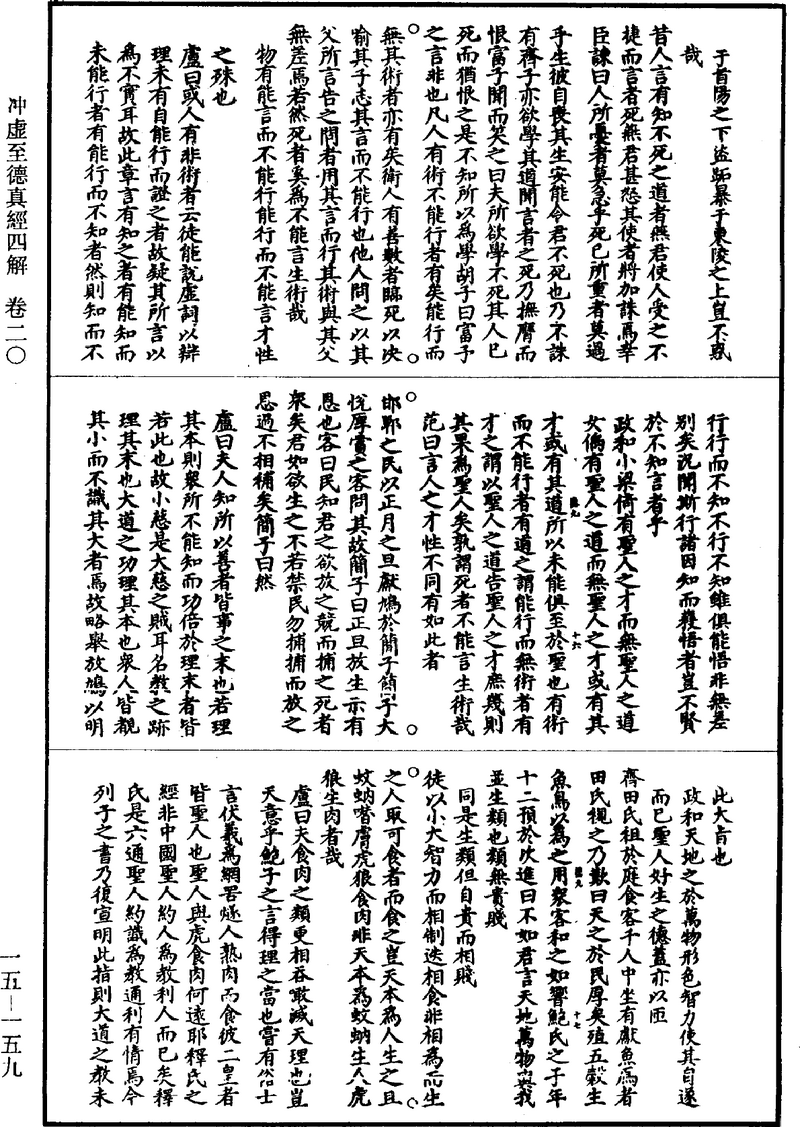 于首陽之下盜跖暴于東陵之上豈不惑
哉
昔人言有知不死之道者燕君使人受之不
捷而言者死燕君甚怒其使者將加誅焉幸
臣諫曰人所憂者莫急乎死己所重者莫過
乎生彼自喪其生安能令君不死也乃不誅
有齊子亦欲學其道聞言者之死乃撫膺而
恨富子聞而笑之曰夫所欲學不死其人已
死而猶恨之是不知所以為學胡子曰富子
之言非也凡人有術不能行者有矣能行而
無其術者亦有矣衛人有善數者臨死以決
喻其子志其言而不能行也他人問之以其
父所言告之問者用其言而行其術與其父
無差焉若然死者奚為不能言生術哉
物有能言而不能行能行而不能言才性
之殊也
盧曰或人有非術者云徒能說虛詞以辯
理未有自能行而證之者故疑其所言以
為不實耳故此章言有知之者有能知而
未能行者有能行而不知者然則知而不
行行而不知不行不知雖俱能悟非無差
別矣況聞斯行諸因知而獲悟者豈不賢
於不知言者乎
政和卜梁倚有聖人之才而無聖人之道
女偊有聖人之道而無聖人之才或有其
才或有其道所以未能俱至於聖也有術
而不能行者有道之謂能行而無術者有
才之謂以聖人之道告聖人之才庶幾則
其果為聖人矣孰謂死者不能言生術哉
范曰言人之才性不同有如此者
邯鄲之民以正月之旦獻鳩於簡子簡子大
悅厚賞之客問其故簡子曰正旦放生示有
恩也客曰民知君之欲放之競而捕之死者
眾矣君如欲生之不若禁民勿捕捕而放之
恩過不相補矣簡子曰然
盧曰夫人知所以善者皆事之末也若理
其本則眾所不能知而功倍於理末者皆
若此也故小慈是大慈之賊耳名教之跡
理其末也大道之功理其本也眾人皆覩
其小而不識其大者焉故略舉放鳩以明
此大旨也
政和天地之於萬物形色智力使其自遂
而已聖人好生之德蓋亦以匝
齊田氏祖於庭食客千人中坐有獻魚鴈者
田氏視之乃歎曰天之於民厚矣殖五穀生
魚鳥以為之用眾客和之如響鮑氏之子年
十二預於次進曰不如君言天地萬物與我
並生類也類無貴賤
同是生類但自貴而相賤
徒以小大智力而相制迭相食非相為而生
之人取可食者而食之豈天本為人生之且
蚊蚋噆膚虎狼食肉非天本為蚊蚋生人虎
狼生肉者哉
盧曰夫食肉之類更相吞噉滅天理也豈
天意乎鮑子之言得理之當也嘗有俗士
言伏羲為網罟燧人熟肉而食彼二皇者
皆聖人也聖人與虎食肉何遠耶釋氏之
經非中國聖人約人為教利人而已矣釋
氏是六通聖人約識為教通利有情焉今
列子之書乃復宣明此指則大道之教未
沖虛至德真經四解 卷二〇
一五—一五九
十六
十七